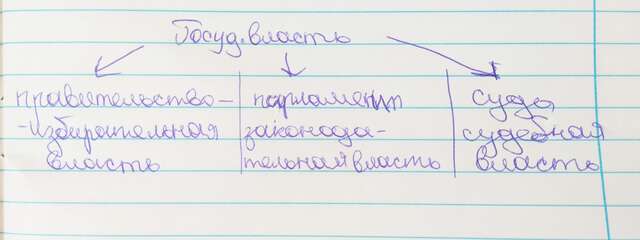 Госуд. власть
правительство -
- избирательная
власть
парламент
законода-
тельная власть
суды
судебная
власть